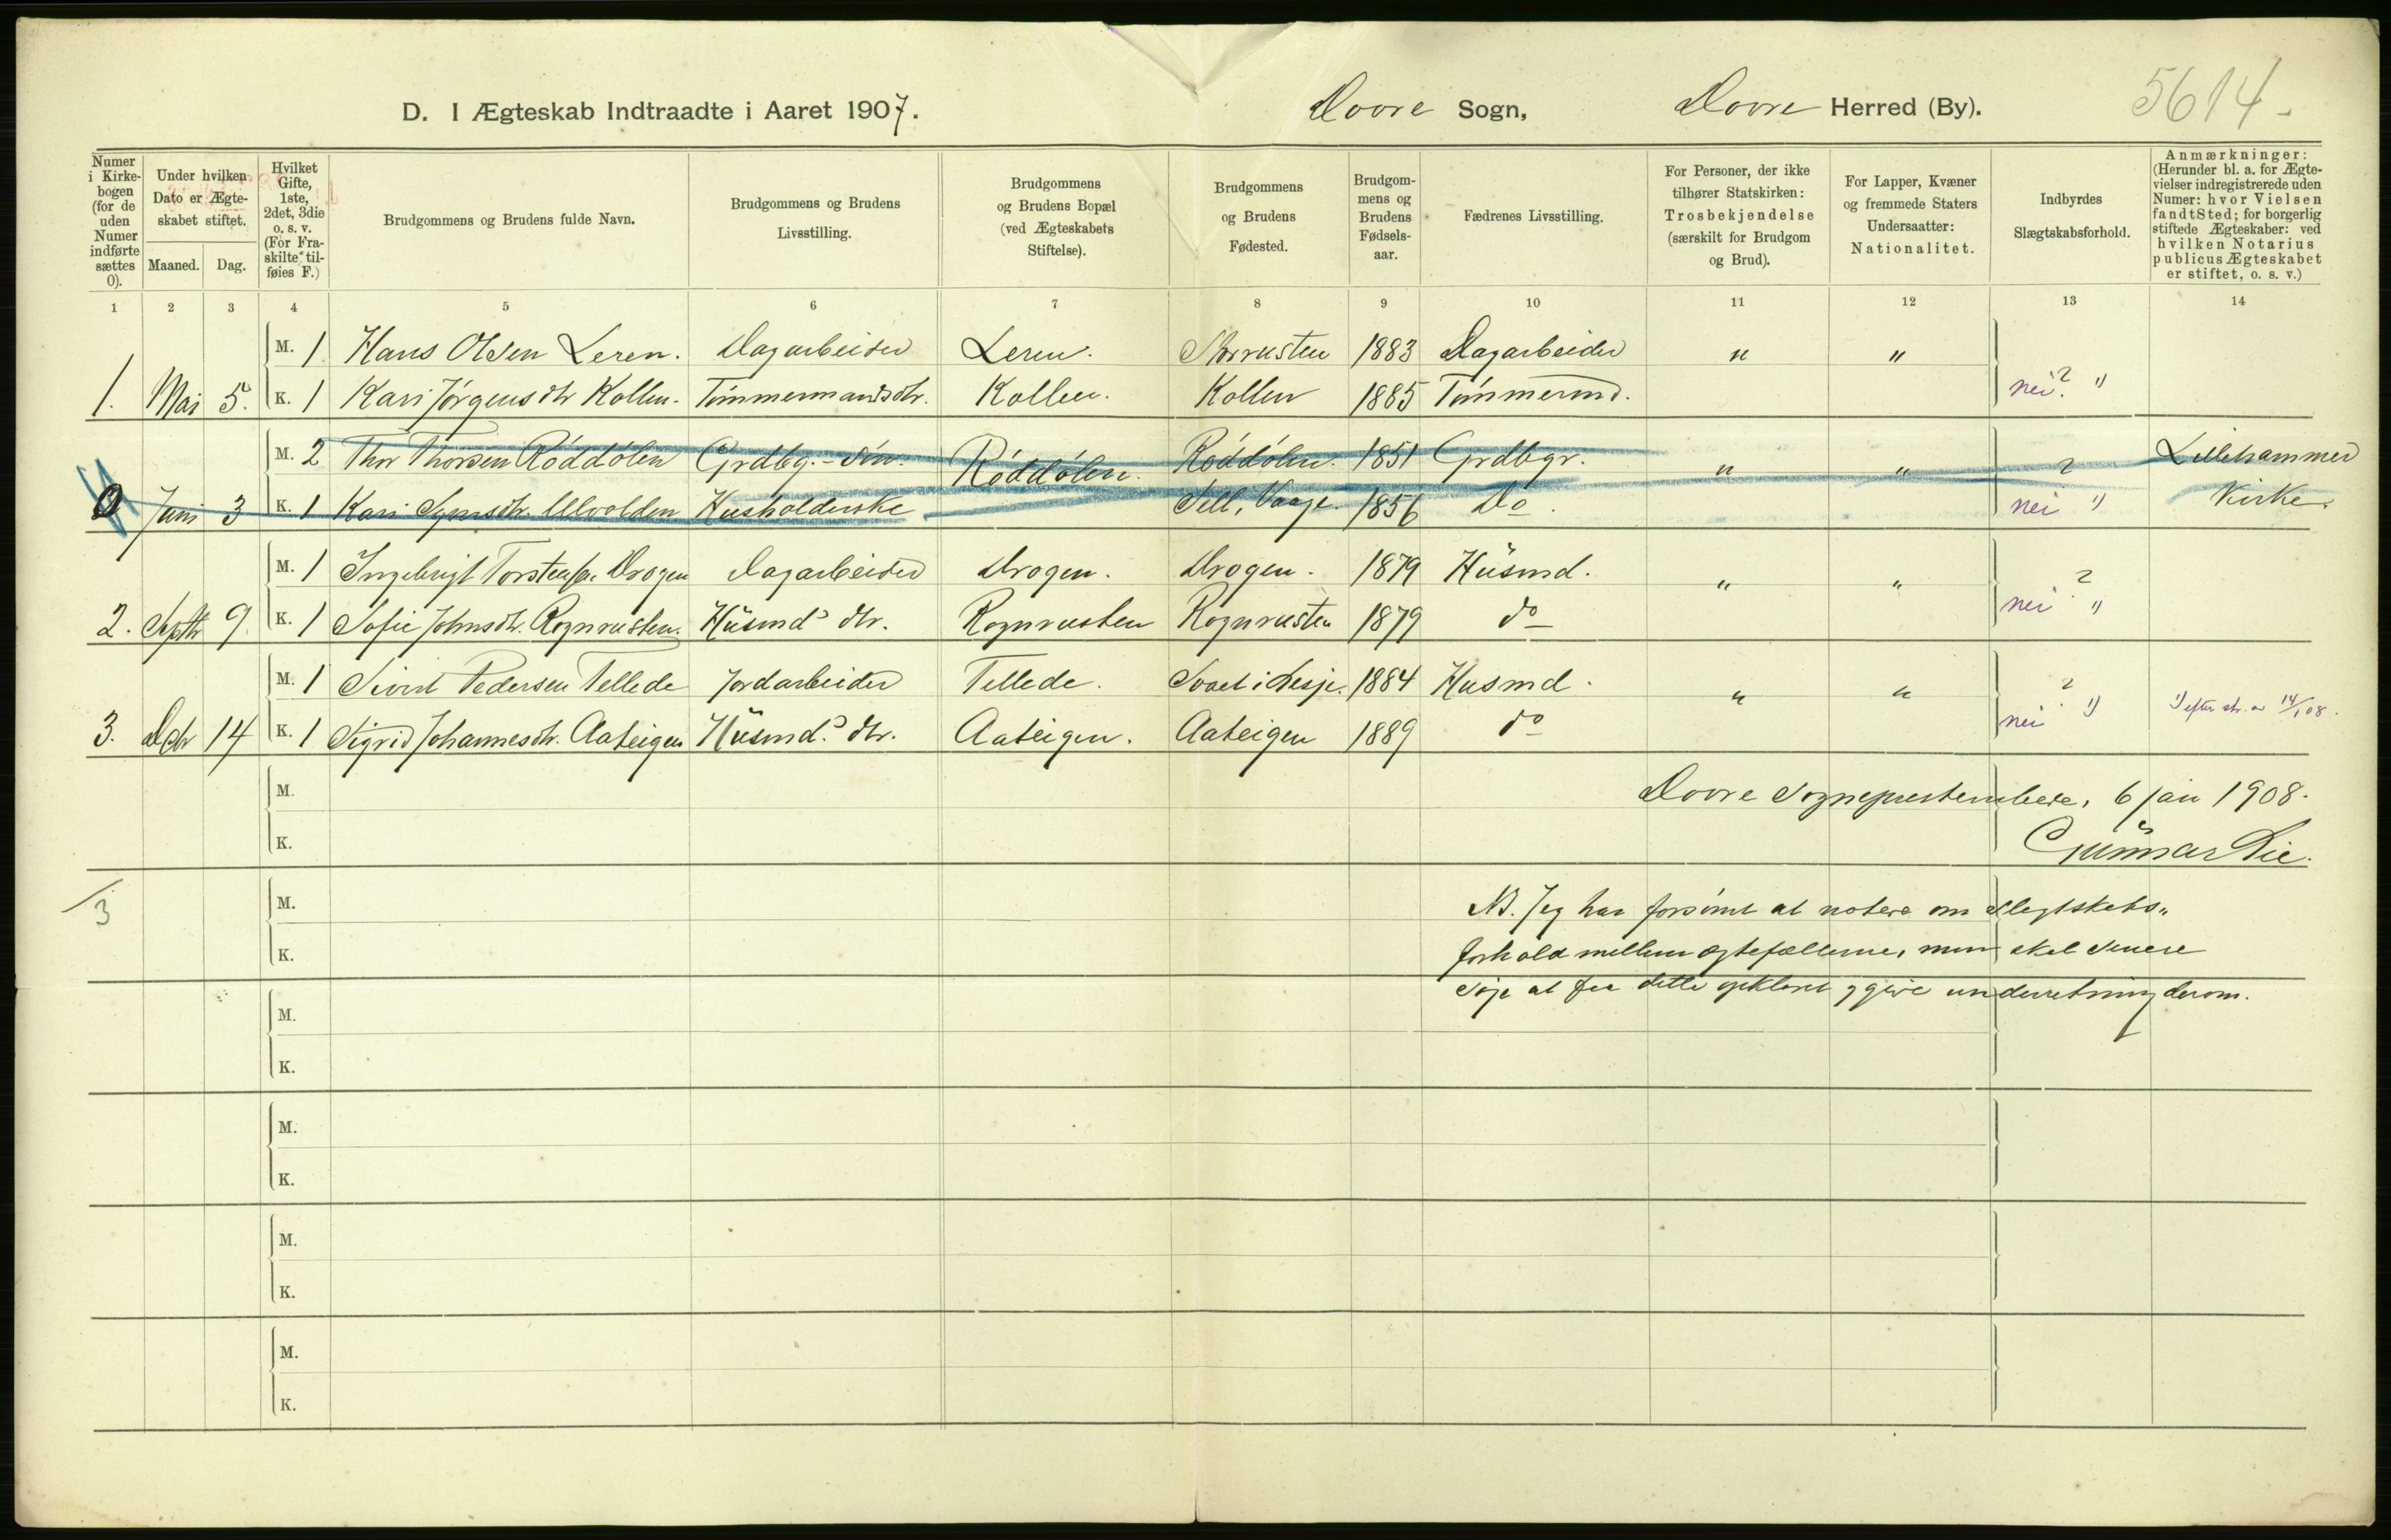 D. I Ægteskab Indtraadte i Aaret 1907.
Dovre Sogn, Dovre Herred (By).
5614-
Numer i Kirkebogen (for de uden Numer indførte sættes 0).
Under hvilken Dato er Ægteskabet stiftet.
Maaned. Dag.
Hvilket Gifte, 1ste, 2det, 3die o. s. v. (For Fraskilte tilføies F.)
Brudgommens og Brudens fulde Navn.
Brudgommens og Brudens Livsstilling.
Brudgommens og Brudens Bopæl (ved Ægteskabets Stiftelse).
Brudgommens og Brudens Fødested.
Brudgommens og Brudens Fødselsaar.
Fædrenes Livsstilling.
For Personer, der ikke tilhører Statskirken: Trosbekjendelse (særskilt for Brudgom og Brud).
For Lapper, Kvæner og fremmede Staters Undersaatter: Nationalitet.
Indbyrdes Slægtskabsforhold.
Anmærkninger: (Herunder bl. a. for Ægtevielser indregistrerede uden Numer: hvor Vielsen fandt Sted; for borgerlig stiftede Ægteskaber: ved hvilken Notarius publicus Ægteskabet er stiftet, o. s. v.)
1 2 3 4 5 6 7 8 9 10 11 12 13 14
M. 1 Hans Olsen Leren. Dagarbeider Leren. 1883 Dagarbeider " "
1. Mai 5. K. 1 Kari Jørgensdtr Kollen. Tømmermandsdtr. Kollen. Kollen 1885 Tømmermd. nei ? 1)
M. 2 Thor Thorsen Røddølen Grdbg.-søn. Røddølen. Røddølen. 1851 Grdbgr. " " ? Lillehammer
0 Juni 3 K. 1 Kari Ulvolden Husholderske Sell, Vaage. 1856 Do. nei 1) Kirke.
M. 1 Ingebrigt Torstensen Drogen Dagarbeider Drogen. Drogen. 1879 Husmd. " " ?
2. Septbr 9. K. 1 Sofie Johnsdtr. Rognrusten. Husmds dtr. Rognrusten Rognrusten 1879 do nei 1)
M. 1 Sivert Pedersen Tellede Jordarbeider Tellede. i Lesje. 1884 Husmd. " " ?
3. Dcbr 14 K. 1 Sigrid Johannesdtr. Aateigen Husmds. dtr. Aateigen. Aateigen 1889 do nei 1) 1) efter skr. av 14/1 08.
M. Dovre Sogneprestembede, 6 jan 1908.
K. Gunnar Lie.
3
M. NB. Jeg har forsømt at notere om slegtskabs-
K. forhold mellem ægtefællerne, men skal senere
søge at faa dette opklaret og give underretning derom.
M.
K.
M.
K.
M.
K.
M.
K.